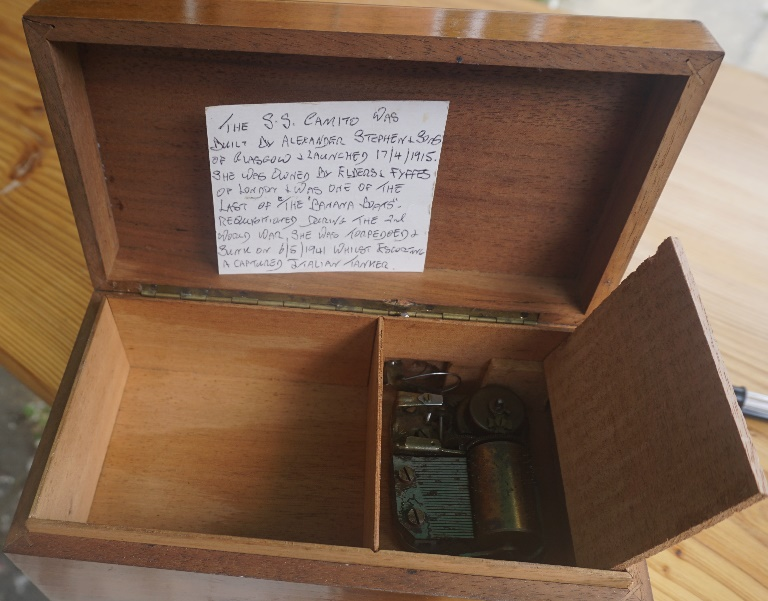 THE S.S. CAMITO WAS
BUILT BY ALEXANDER STEPHEN & SONS
OF GLASGOW & LAUNCHED 17/4/1915.
SHE WAS OWNED BY ELDERS & FYFFES
OF LONDON & WAS ONE OF THE
LAST OF "THE BANANA BOATS".
REQUISITIONED DURING THE 2nd
WORLD WAR, SHE WAS TORPEDOED &
SUNK ON 6/5/1941 WHILST ESCORTING
A CAPTURED ITALIAN TANKER.